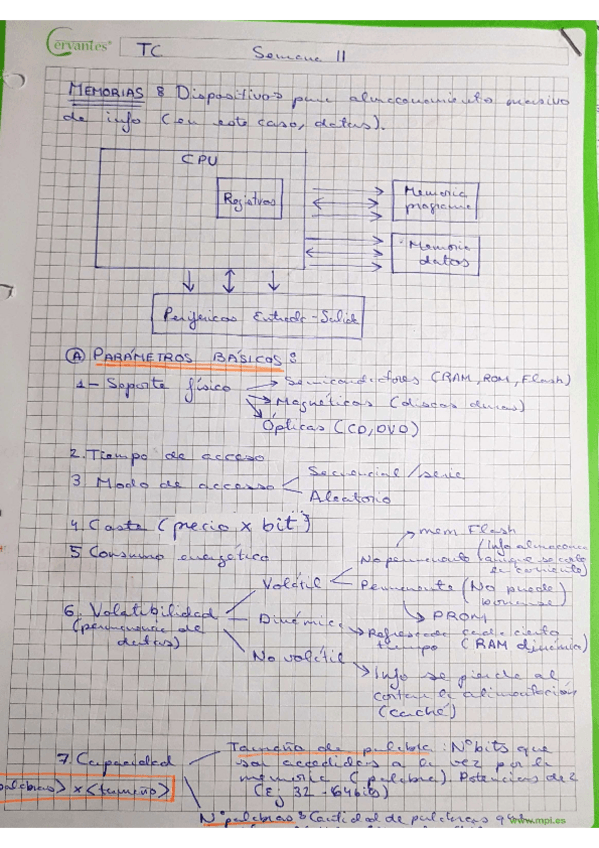 Cervantes® TC Semana 11
MEMORIAS : Dispositivos para almacenamiento masivo
de info (en este caso, datos).
CPU
Registros
Memoria
programa
Memoria
datos
Periféricos Entrada-Salida
A PARÁMETROS BÁSICOS :
1- Soporte físico → Semiconductores (RAM, ROM, Flash)
→ Magnéticas (discos duros)
→ Ópticas (CD, DVD)
2. Tiempo de acceso
3 Modo de accesso
Secuencial/serie
Aleatorio
4 Coste (precio x bit)
5 Consumo energético
6. Volatibilidad
(permanencia de
datos)
Volátil
No permanente
→ mem Flash
(Info almacena
aunque se corte
la corriente)
Permanente (No puede
borrarse)
→ PROM
Dinámica → Refrescada cada cierto
tiempo (RAM dinámica)
No volátil
→ Info se pierde al
cortar la alimentación
(caché)
7. Capacidad
Tamaño de palabra : Nº bits que
son accedidos a la vez por la
memoria (palabra). Potencias de 2
(Ej 32 - 64 bits)
palabras> x <tamaño>
Nº palabras : Cantidad de palabras
www.mpi.es